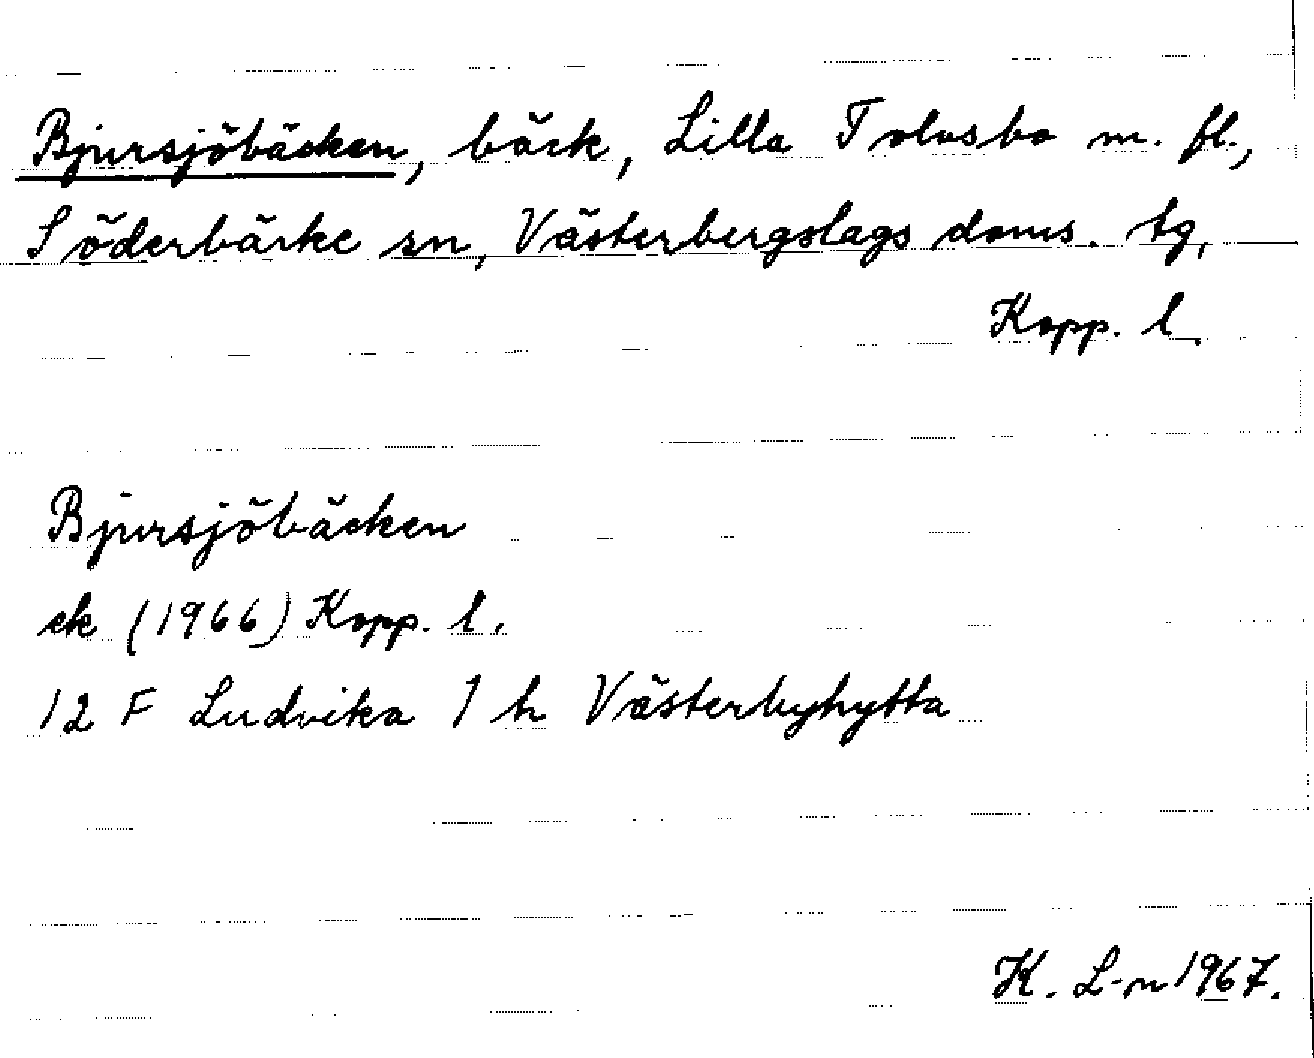 Bjursjöbäcken, bäck, Lilla Tolvsbo m. fl.,
Söderbärke sn, Västerbergslags doms. tg,
Kopp. l.
Bjursjöbäcken
ek (1966) Kopp. l.
12 F Ludvika 1 h Västerbyhytta
K. L-n 1967.